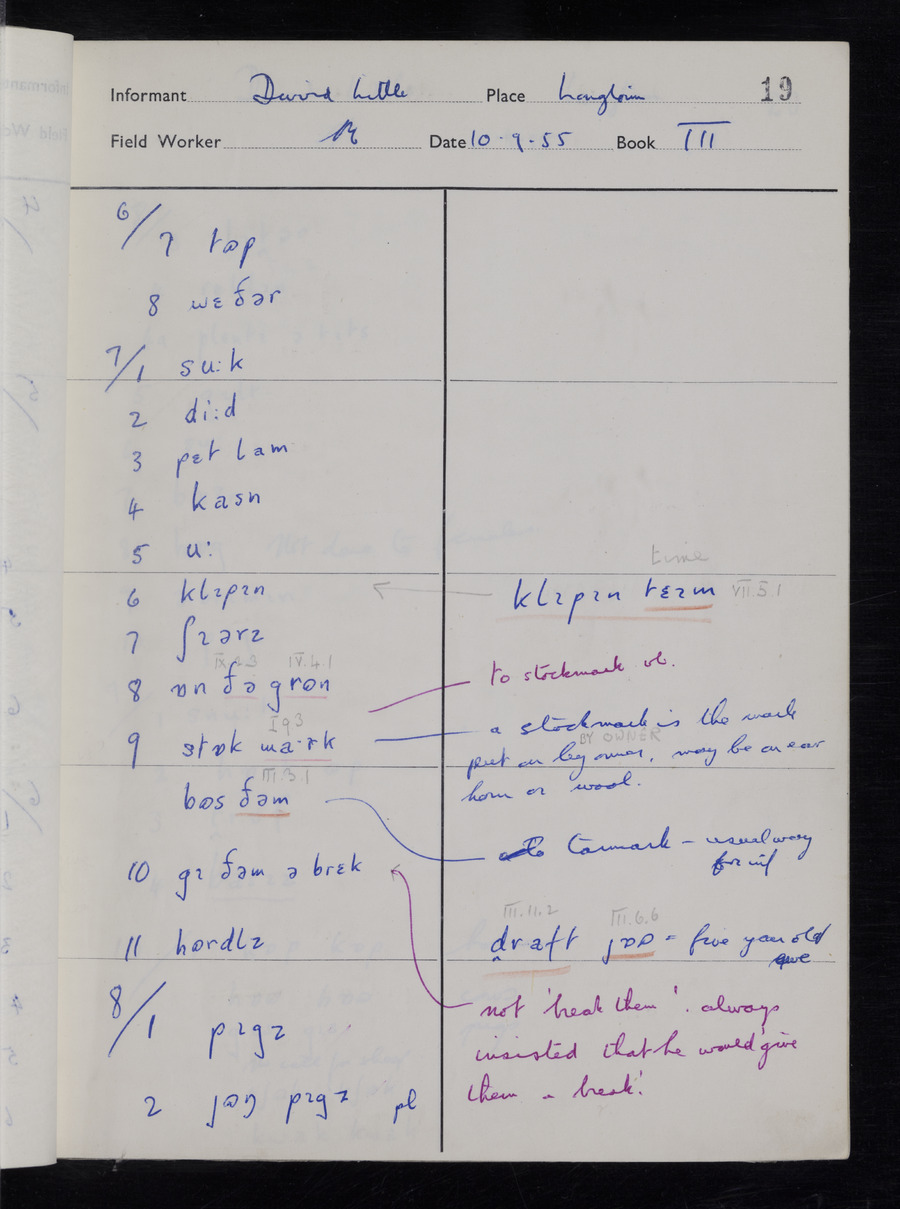 Informant David Little Place Longtown 19
Field Worker Date 10.9.55 Book III
6/7 tɒp
8 wɛðər
7/1 su:k
2 di:d
3 pɛt lam
4 kasn
5 u:
time
6 klɪpɪn klɪpɪn tɛəm VII.5.1
7 ʃɪərz
IX IV.4.1
8 ɒn ðə grɒn to stockmark vb.
I 9 3
9 stɒk ma·rk a stockmark is the mark
BY OWNER
put on by owner, may be on ear
horn or wool.
III.3.1
bɒs ðəm
to Tarmark – usual way
for inf
10 gɪ ðəm ə brɛk
III.11.2 III.6.6
11 hərdlz draft joo = five year old
ewe
8/1 pɪgz not 'break them'. always
insisted that he would 'give
them a break'.
2 jəŋ pɪgz pl